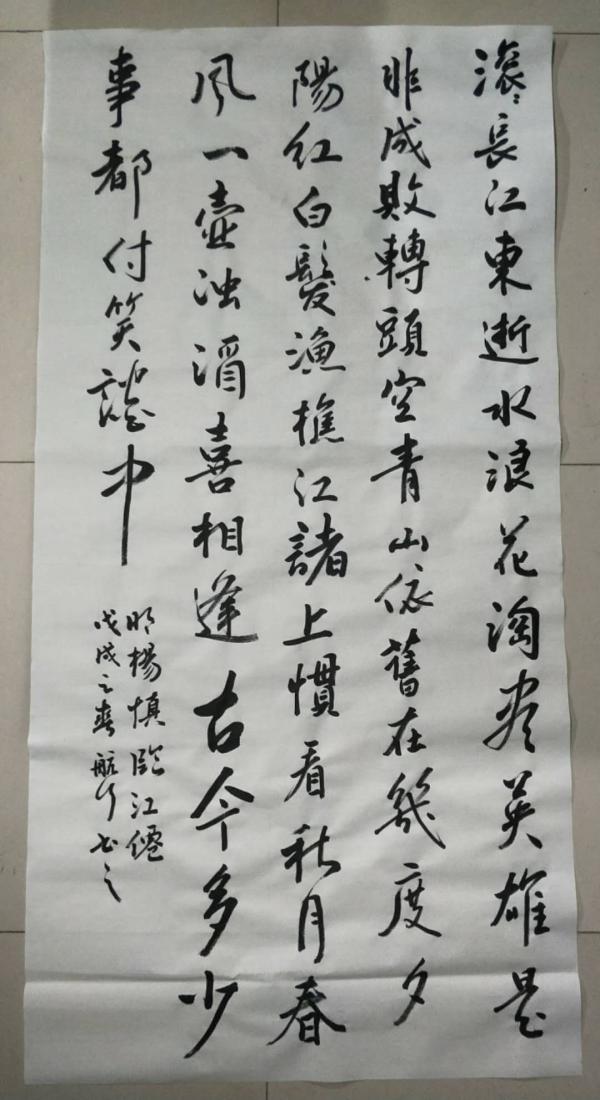 滚〻長江東逝水浪花淘尽英雄是
非成敗轉頭空青山依舊在幾度夕
陽紅白髮漁樵江諸上慣看秋月春
風一壺浊酒喜相逢古今多少
事都付笑談中
明楊慎臨江僊
戊戌之春航书之